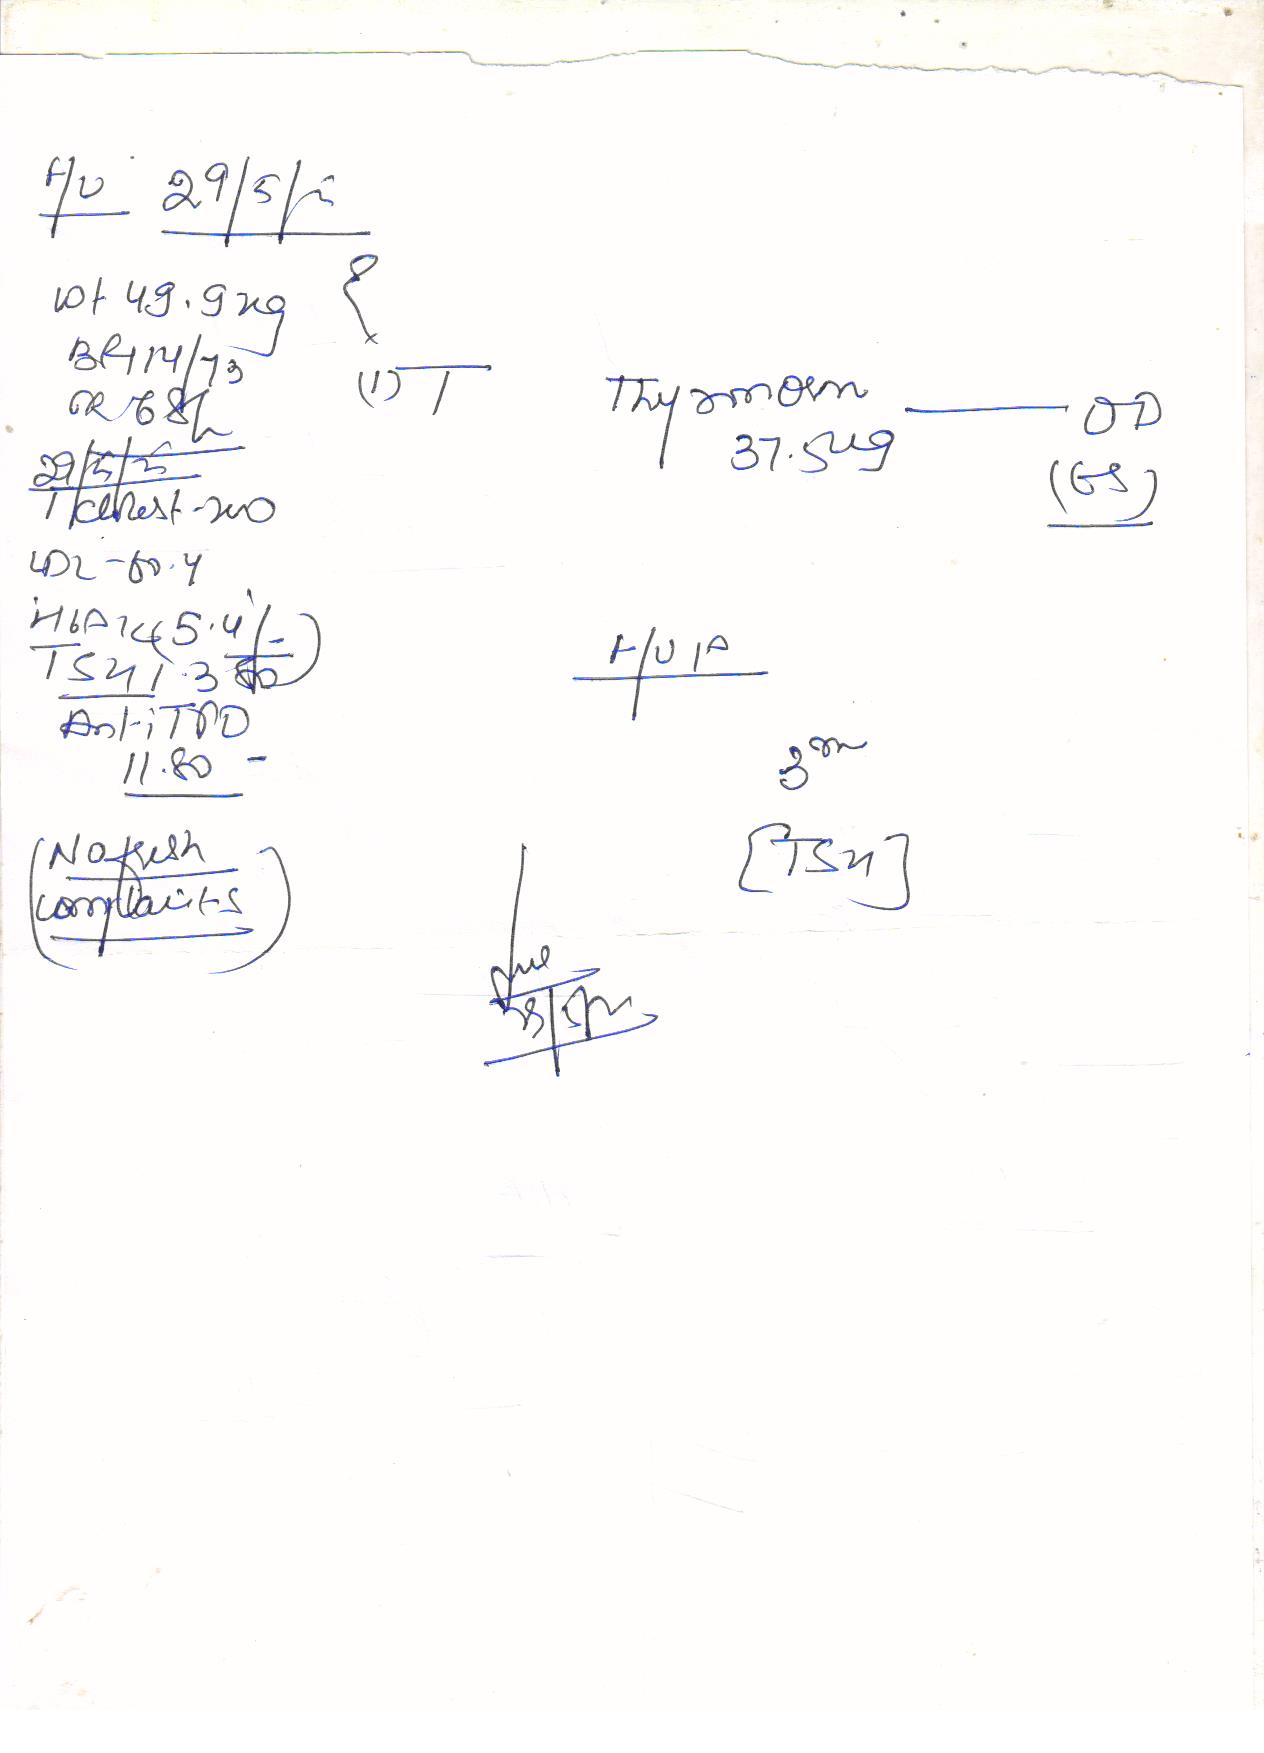 F/U 29/5/
Wt 49.9 kg
BP 114/73
PR 68/
29/5/
T/cholest - 200
LDL - 60.4
HbA1c (5.4%)
TSH 1.380
Anti TPO
11.80 -
(No fresh
complaints)
(1) T Thyronorm OD
37.5 ug
(ES)
F/U
3m
[TSH]